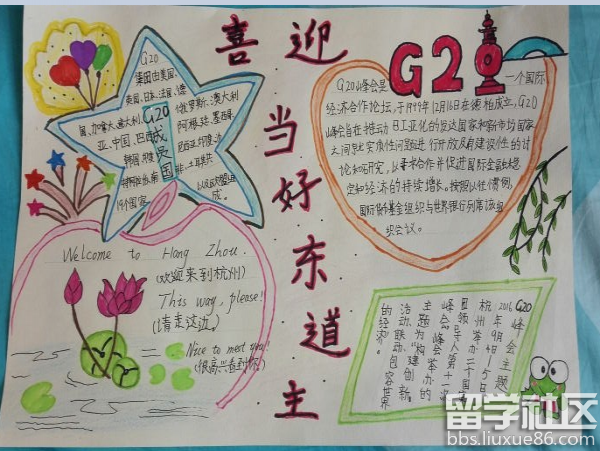 喜迎G2
当好东道主
G20
集团由美国、
英国、日本、法国、德
国、加拿大、意大利、俄罗斯、澳大利
亚、中国、巴西、阿根廷、墨西哥、
韩国、印度尼西亚、印度、沙
特阿拉伯、南非、土耳其共
19个国家以及欧盟组
成。
G20成员国
G20峰会是一个国际
经济合作论坛,于1999年12月16日在德柏成立,G20
峰会旨在推动已工业化的发达国家和新市场国家
之间就实质性问题进行开放及有建设性的讨
论和研究,以寻求合作并促进国际金融稳
定和经济的持续增长。按照以往惯例,
国际货币基金组织与世界银行列席该组
织会议。
Welcome to Hang Zhou.
(欢迎来到杭州)
This way, please!
(请走这边。)
Nice to meet you!
(很高兴看到你)
G20峰会主题
2016年9月4日-5日
杭州举办二十国集
团领导人第十一次
峰会,峰会举办的
主题为"构建创新、
活动、联动、包容世界
的经济。
留学社区
bbs.liuxue86.com